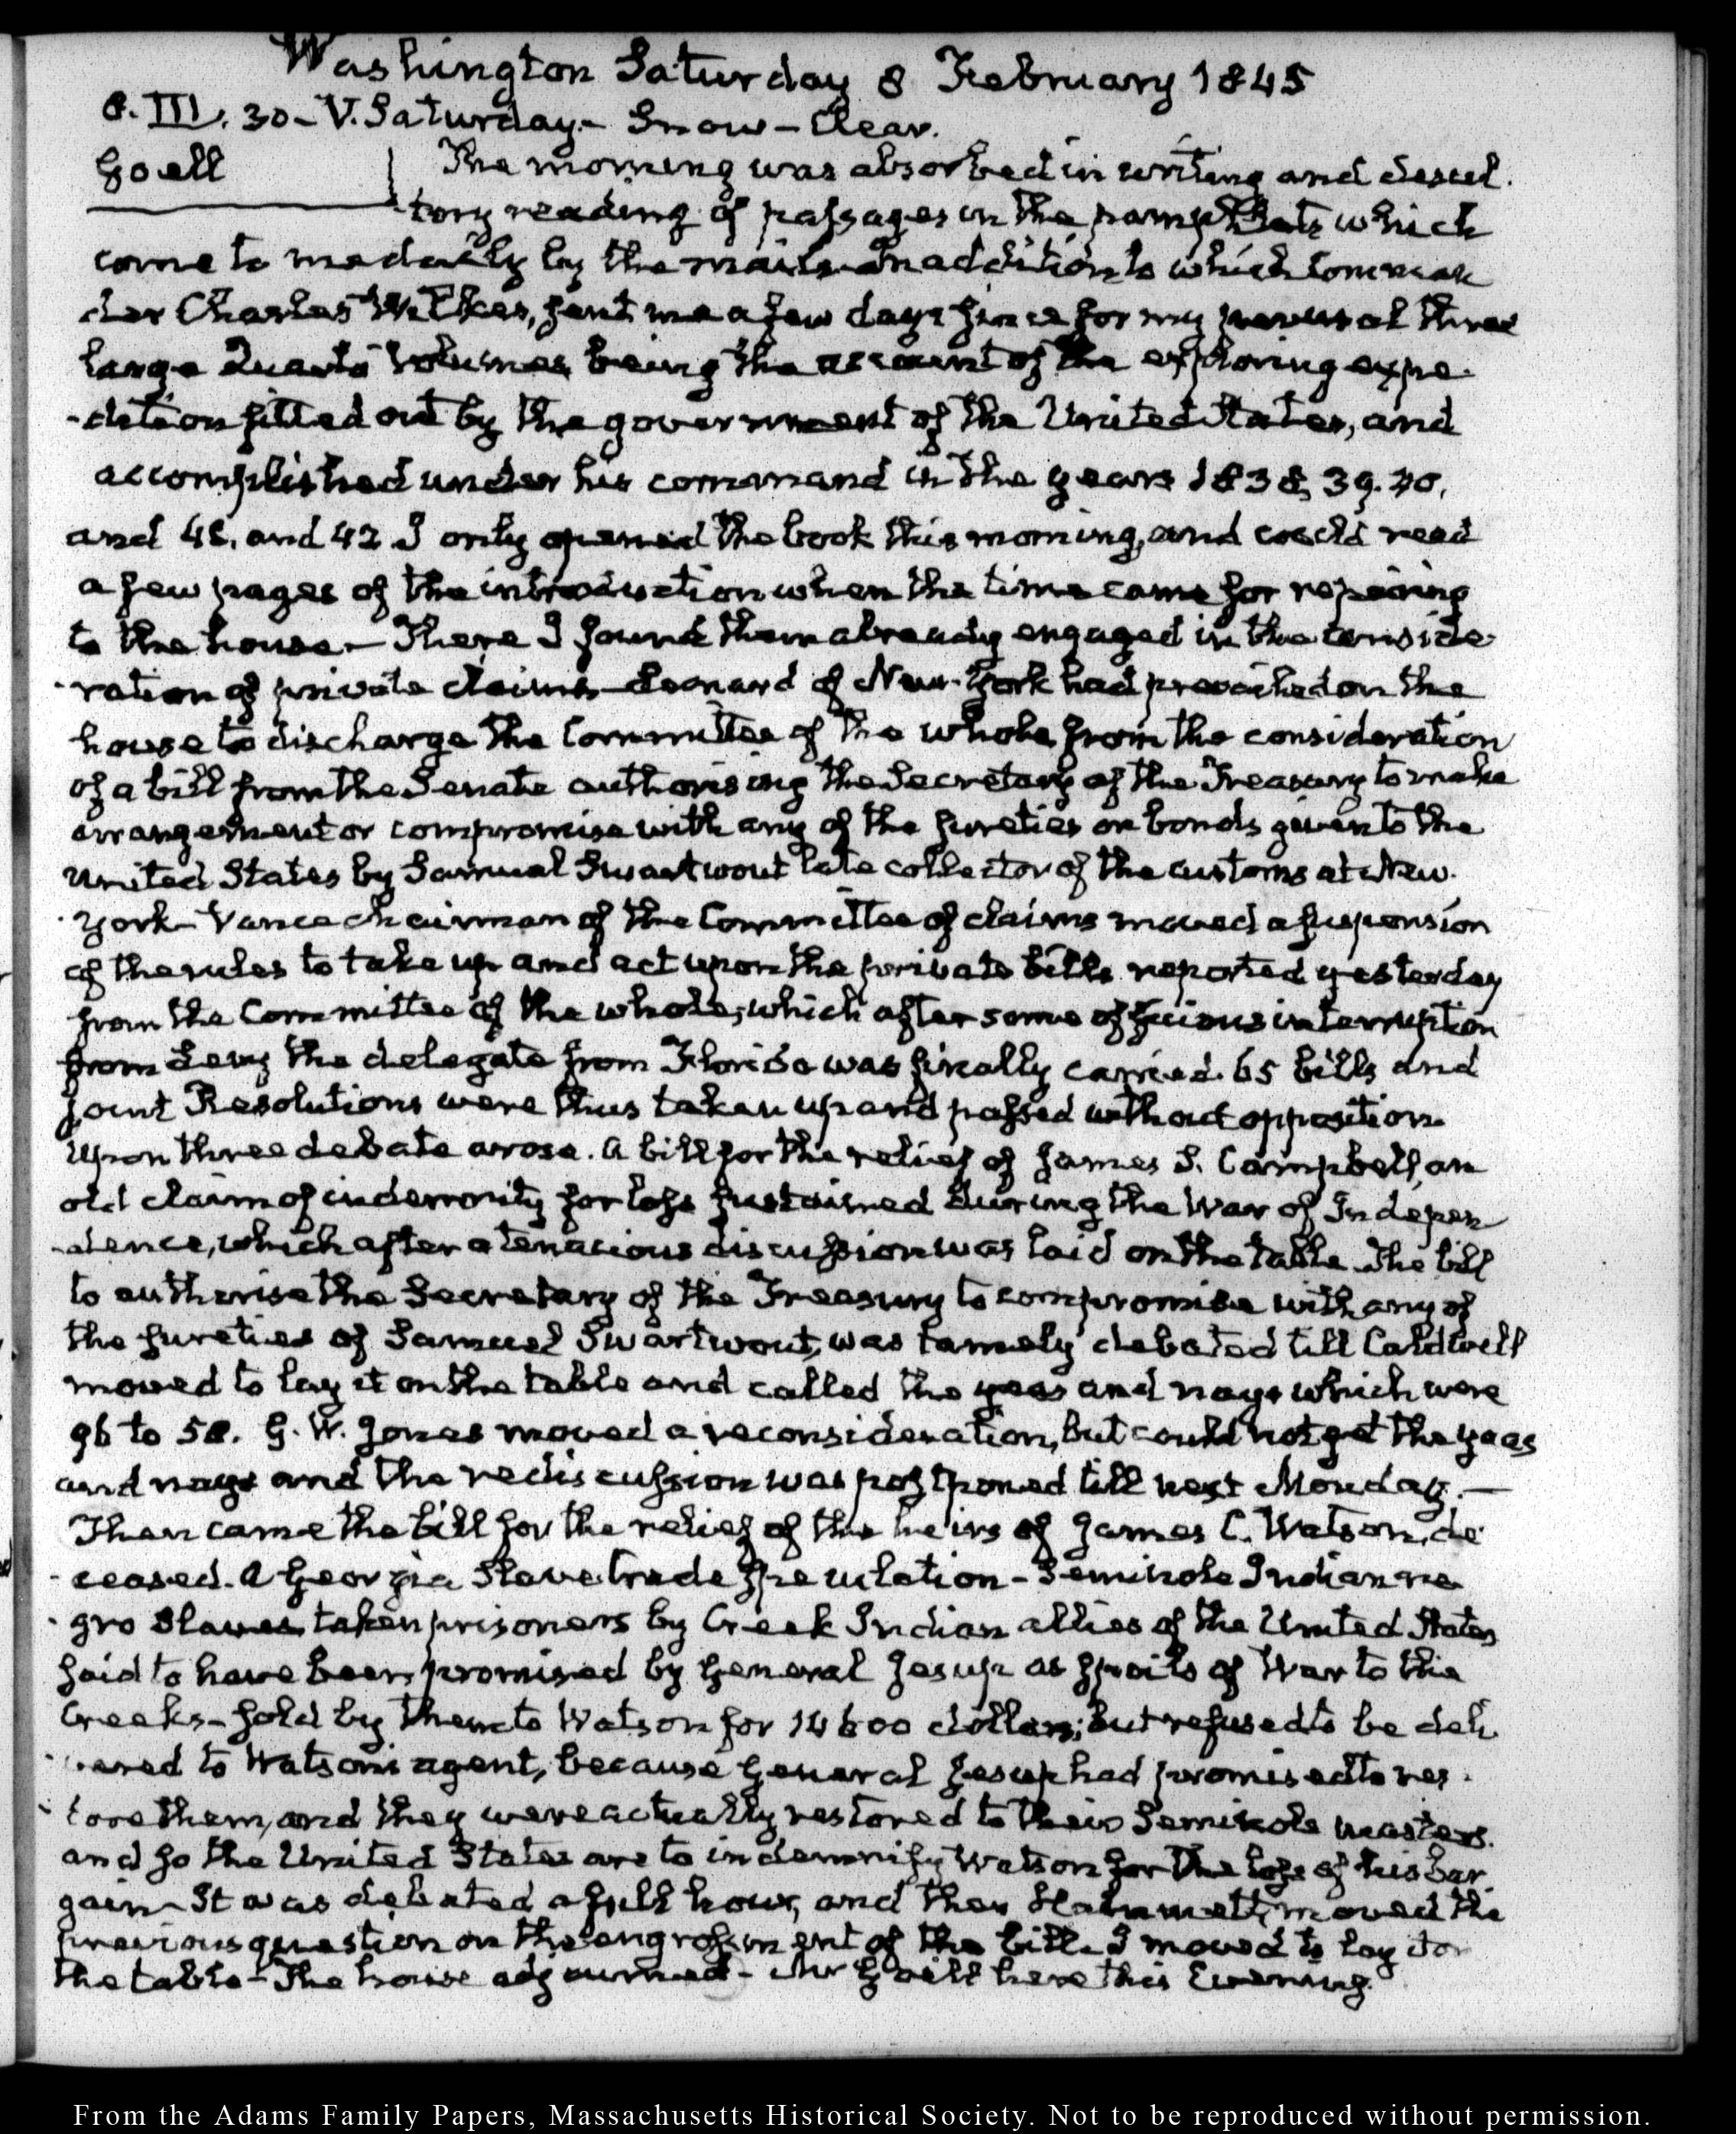 Washington Saturday 8 February 1845
8. III. 30 - V. Saturday - Snow - Clear.
Goell
The morning was absorbed in writing and desul.
-tory reading of passages in the pamphlets which
come to me daily by the mails. In addition to which Comman
der Charles Wilkes, sent me a few days since for my perusal three
large Quarto Volumes being the account of the exploring expe-
-dition fitted out by the government of the United States, and
accomplished under his command in the years 1838, 39. 40.
and 41. and 42 I only opened the book this morning, and could read
a few pages of the introduction when the time came for repairing
to the house - There I found them already engaged in the conside
-ration of private claims - Leonard of New-York had prevailed on the
house to discharge the Committee of the whole from the consideration
of a bill from the Senate authorising the Secretary of the Treasury to make
arrangement or compromise with any of the sureties on bonds given to the
United States by Samuel Swartwout late collector of the customs at New-
-York - Vance chairman of the Committee of claims moved a suspension
of the rules to take up and act upon the private bills reported yesterday
from the Committee of the whole; which after some officious interruption
from Levy the delegate from Florida was finally carried. 65 bills and
joint Resolutions were thus taken up and passed without opposition.
Upon three debate arose. A bill for the relief of James S. Campbell, an
old claim of indemnity for loss sustained during the War of Indepen
-dence, which after a tenacious discussion was laid on the table. The bill
to authorise the Secretary of the Treasury to compromise with any of
the sureties of Samuel Swartwout, was tamely debated till Caldwell
moved to lay it on the table and called the yeas and nays which were
96 to 58. G. W. Jones moved a reconsideration, but could not get the yeas
and nays and the rediscussion was postponed till next Monday. -
Then came the bill for the relief of the heirs of James C. Watson, de
-ceased. A Georgia Slave trade speculation - Seminole Indian ne
-gro Slaves taken prisoners by Creek Indian allies of the United States
said to have been promised by General Jesup as spoils of War to the
Creeks - sold by them to Watson for 14600 dollars; but refused to be deli
-vered to Watson's agent, because General Jesup had promised to res-
-tore them, and they were actually restored to their Seminole masters.
and so the United States are to indemnify Watson for the loss of his bar
gain - It was debated a full hour, and then moved the
previous question on the engrossment of the bill. I moved to lay it on
the table - The house adjourned - Mr Goell here this Evening.
From the Adams Family Papers, Massachusetts Historical Society. Not to be reproduced without permission.